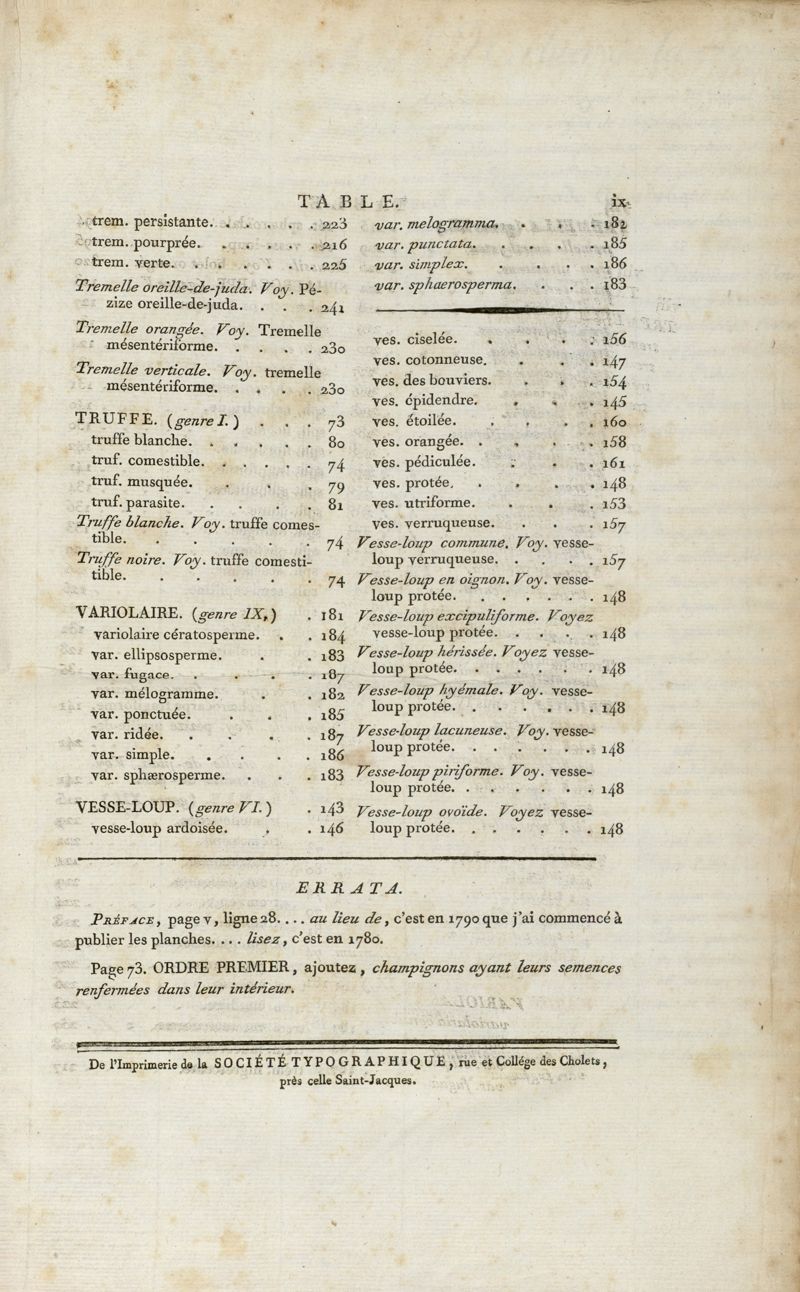 TABLE. ix
trem. persistante. . . . . . 223
trem. pourprée. . . . . . 216
trem. verte. . . . . . . 225
Tremelle oreille-de-juda. Voy. Pé-
zize oreille-de-juda. . . . . 241
Tremelle orangée. Voy. Tremelle
mésentériforme. . . . . 230
Tremelle verticale. Voy. tremelle
mésentériforme. . . . . 230
TRUFFE. (genre I.) . . . 73
truffe blanche. . . . . . 80
truf. comestible. . . . . . 74
truf. musquée. . . . 79
truf. parasite. . . . . 81
Truffe blanche. Voy. truffe comes-
tible. . . . . . 74
Truffe noire. Voy. truffe comesti-
tible. . . . . . 74
VARIOLAIRE. (genre IX,) . 181
variolaire cératosperme. . . 184
var. ellipsosperme. . . 183
var. fugace. . . . . 187
var. mélogramme. . . 182
var. ponctuée. . . . 185
var. ridée. . . . . 187
var. simple. . . . . 186
var. sphærosperme. . . . 183
VESSE-LOUP. (genre VI.) . 143
vesse-loup ardoisée. . . 146
var. melogramma. . . . 182
var. punctata. . . . . 185
var. simplex. . . . . 186
var. sphaerosperma. . . . 183
ves. ciselée. . . . . 156
ves. cotonneuse. . . . 147
ves. des bouviers. . . . 154
ves. épidendre. . . . 145
ves. étoilée. . . . . 160
ves. orangée. . . . . 158
ves. pédiculée. . . . 161
ves. protée. . . . . 148
ves. utriforme. . . . 153
ves. verruqueuse. . . . 157
Vesse-loup commune. Voy. vesse-
loup verruqueuse. . . . . 157
Vesse-loup en oignon. Voy. vesse-
loup protée. . . . . . . 148
Vesse-loup excipuliforme. Voyez
vesse-loup protée. . . . . 148
Vesse-loup hérissée. Voyez vesse-
loup protée. . . . . . . 148
Vesse-loup hyémale. Voy. vesse-
loup protée. . . . . . . 148
Vesse-loup lacuneuse. Voy. vesse-
loup protée. . . . . . . 148
Vesse-loup piriforme. Voy. vesse-
loup protée. . . . . . . 148
Vesse-loup ovoïde. Voyez vesse-
loup protée. . . . . . . 148
ERRATA.
PRÉFACE, page v, ligne 28. . . . au lieu de, c'est en 1790 que j'ai commencé à
publier les planches. . . . lisez, c'est en 1780.
Page 73. ORDRE PREMIER, ajoutez, champignons ayant leurs semences
renfermées dans leur intérieur.
De l'Imprimerie de la SOCIÉTÉ TYPOGRAPHIQUE, rue et Collége des Cholets,
près celle Saint-Jacques.